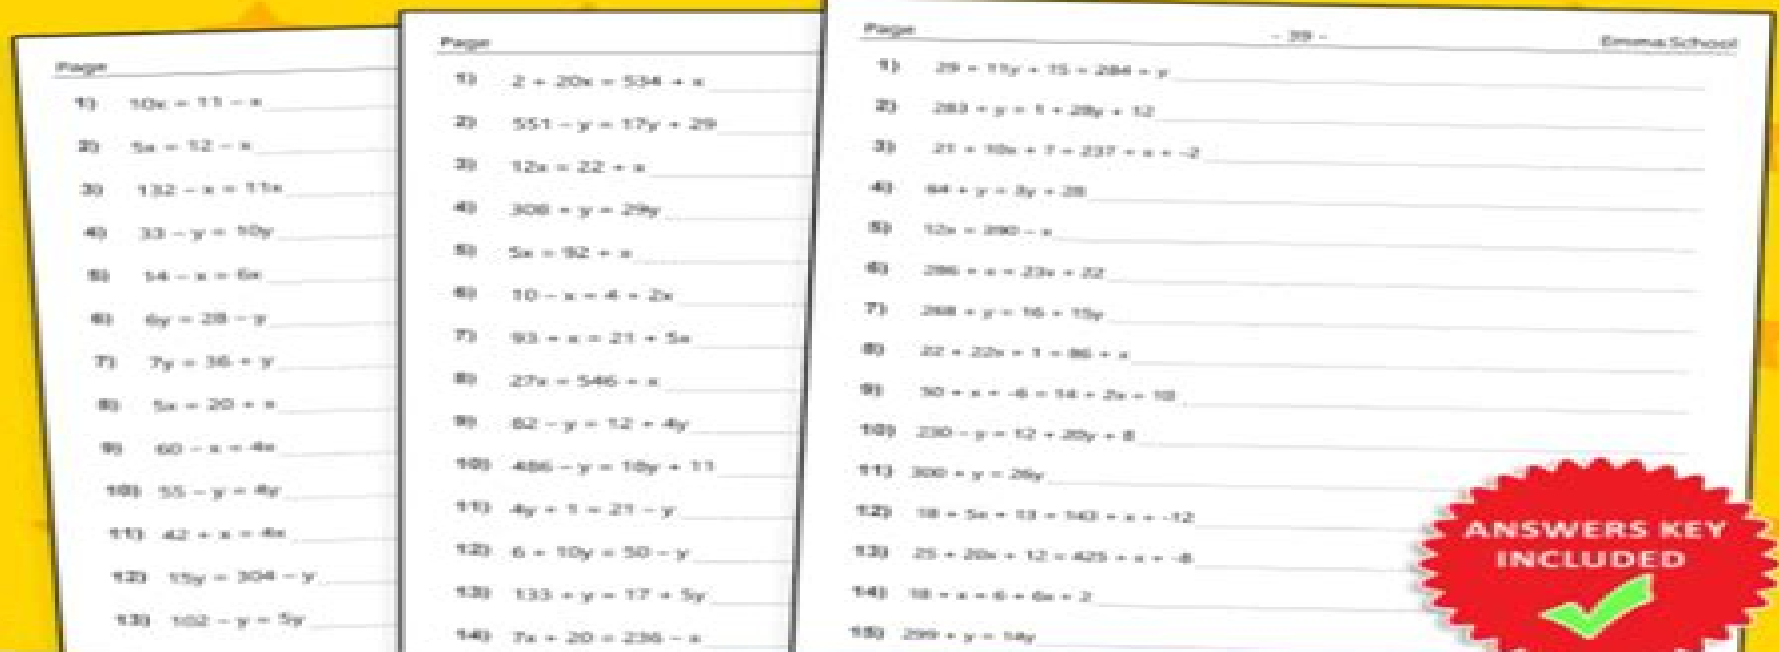 Page
1) 10x = 11 − x
2) 5x = 12 − x
3) 132 − x = 11x
4) 33 − y = 10y
5) 14 − x = 6x
6) 6y = 28 − y
7) 7y = 36 + y
8) 5x = 20 + x
9) 60 − x = 4x
10) 55 − y = 4y
11) 42 + x = 4x
12) 15y = 304 − y
13) 102 − y = 5y
Page
1) 2 + 20x = 534 + x
2) 551 − y = 17y + 29
3) 12x = 22 + x
4) 308 + y = 29y
5) 5x = 92 + x
6) 10 − x = 4 + 2x
7) 93 + x = 21 + 5x
8) 27x = 546 + x
9) − y = 12 + 4y
10) 486 − y = 18y + 11
11) 4y + 1 = 21 − y
12) 6 + 10y = 50 − y
13) 133 + y = 17 + 5y
14) 7x + 20 = 236 − x
Page - 39 - Emma.School
1) 29 + 11y + 15 = 284 + y
2) 283 + y = 1 + 28y + 12
3) 21 + 10x + 7 = 237 + x + -2
4) 64 + y = 3y + 28
5) 12x = 390 − x
6) 286 + x = 23x + 22
7) 268 + y = 16 + 15y
8) 22 + 22x + 1 = 86 + x
9) + x + -6 = 14 + 2x + 10
10) 230 − y = 12 + 20y + 8
11) 300 + y = 26y
12) 18 + 5x + 13 = 143 + x + -12
13) 25 + 20x + 12 = 425 + x + -8
14) 18 + x = 6 + 6x + 2
15) 299 + y = 14y
ANSWERS KEY
INCLUDED